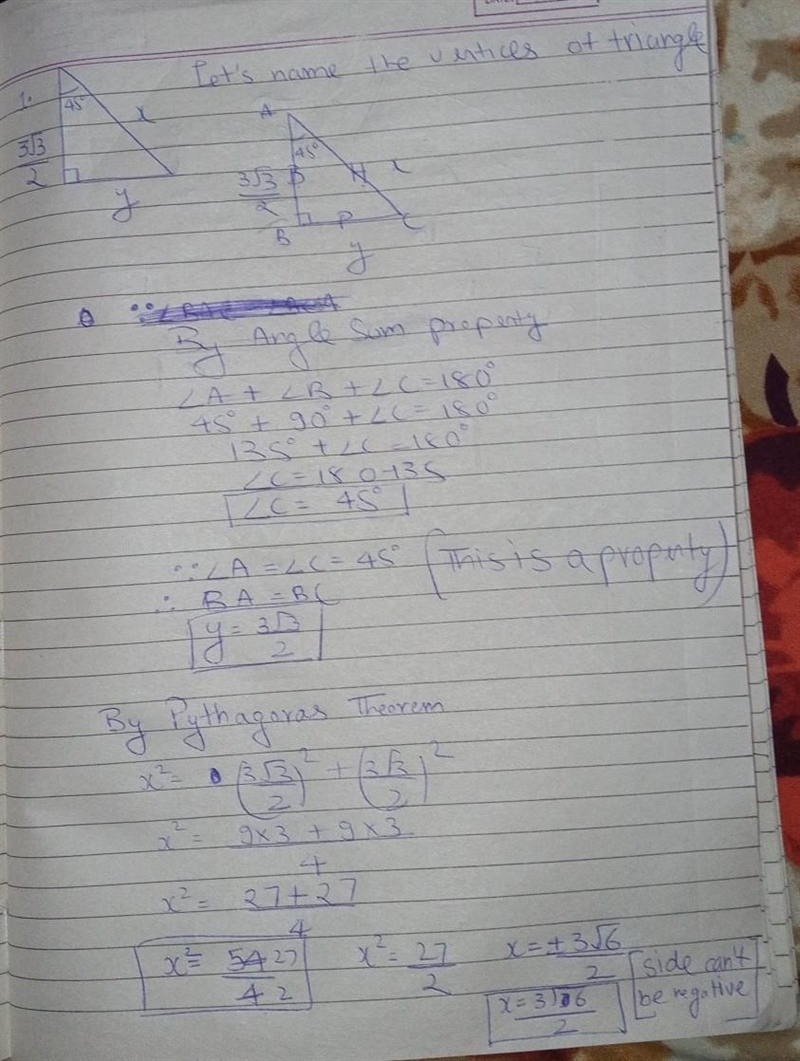 Let's name the vertices of triangle
1.
45°
x
3√3/2
y
A
45°
3√3/2
B
H
x
B
P
C
y
By Angle Sum property
∠A + ∠B + ∠C = 180°
45° + 90° + ∠C = 180°
135° + ∠C = 180°
∠C = 180-135
∠C = 45°
∵ ∠A = ∠C = 45° (This is a property)
∴ BA = BC
y = 3√3/2
By Pythagoras Theorem
x² = (3√3/2)² + (3√3/2)²
x² = 9×3 + 9×3/4
x² = 27+27/4
x² = 54 27/4 2
x² = 27/2
x = ± 3√6/2
[side can't be negative]
x = 3√6/2